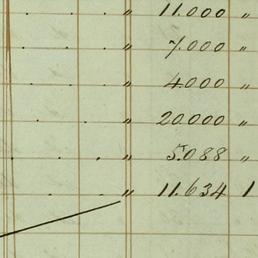 . . . " 11.000 "
. . . " 7.000 "
. . . " 4.000 "
. . . " 20.000 "
. . . " 5.088 "
. . " 11.634 1